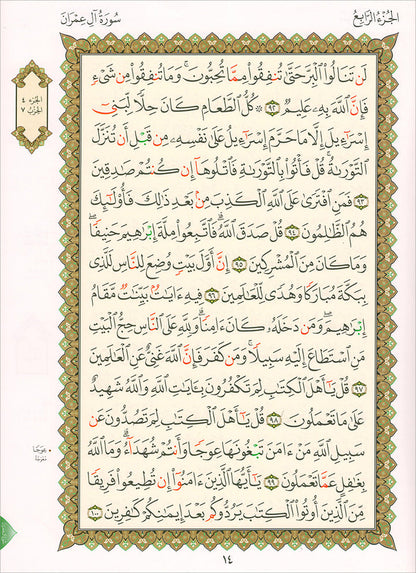 الجزء الرابع
سورة آل عمران
الجزء ٤
الحزب ٧
لَن تَنَالُوا۟ ٱلْبِرَّ حَتَّىٰ تُنفِقُوا۟ مِمَّا تُحِبُّونَ ۚ وَمَا تُنفِقُوا۟ مِن شَىْءٍ
فَإِنَّ ٱللَّهَ بِهِۦ عَلِيمٌ ٩٢ ۞ كُلُّ ٱلطَّعَامِ كَانَ حِلًّا لِّبَنِىٓ
إِسْرَٰٓءِيلَ إِلَّا مَا حَرَّمَ إِسْرَٰٓءِيلُ عَلَىٰ نَفْسِهِۦ مِن قَبْلِ أَن تُنَزَّلَ
ٱلتَّوْرَىٰةُ قُلْ فَأْتُوا۟ بِٱلتَّوْرَىٰةِ فَٱتْلُوهَآ إِن كُنتُمْ صَٰدِقِينَ
٩٣ فَمَنِ ٱفْتَرَىٰ عَلَى ٱللَّهِ ٱلْكَذِبَ مِنۢ بَعْدِ ذَٰلِكَ فَأُو۟لَٰٓئِكَ
هُمُ ٱلظَّٰلِمُونَ ٩٤ قُلْ صَدَقَ ٱللَّهُ ۗ فَٱتَّبِعُوا۟ مِلَّةَ إِبْرَٰهِيمَ حَنِيفًا
وَمَا كَانَ مِنَ ٱلْمُشْرِكِينَ ٩٥ إِنَّ أَوَّلَ بَيْتٍ وُضِعَ لِلنَّاسِ لَلَّذِى
بِبَكَّةَ مُبَارَكًا وَهُدًى لِّلْعَٰلَمِينَ ٩٦ فِيهِ ءَايَٰتٌۢ بَيِّنَٰتٌ مَّقَامُ
إِبْرَٰهِيمَ ۖ وَمَن دَخَلَهُۥ كَانَ ءَامِنًا ۗ وَلِلَّهِ عَلَى ٱلنَّاسِ حِجُّ ٱلْبَيْتِ
مَنِ ٱسْتَطَاعَ إِلَيْهِ سَبِيلًا ۚ وَمَن كَفَرَ فَإِنَّ ٱللَّهَ غَنِىٌّ عَنِ ٱلْعَٰلَمِينَ
٩٧ قُلْ يَٰٓأَهْلَ ٱلْكِتَٰبِ لِمَ تَكْفُرُونَ بِـَٔايَٰتِ ٱللَّهِ وَٱللَّهُ شَهِيدٌ
عَلَىٰ مَا تَعْمَلُونَ ٩٨ قُلْ يَٰٓأَهْلَ ٱلْكِتَٰبِ لِمَ تَصُدُّونَ عَن
سَبِيلِ ٱللَّهِ مَنْ ءَامَنَ تَبْغُونَهَا عِوَجًا وَأَنتُمْ شُهَدَآءُ ۗ وَمَا ٱللَّهُ
بِغَٰفِلٍ عَمَّا تَعْمَلُونَ ٩٩ يَٰٓأَيُّهَا ٱلَّذِينَ ءَامَنُوٓا۟ إِن تُطِيعُوا۟ فَرِيقًا
مِّنَ ٱلَّذِينَ أُوتُوا۟ ٱلْكِتَٰبَ يَرُدُّوكُم بَعْدَ إِيمَٰنِكُمْ كَٰفِرِينَ ١٠٠
• عِوَجًا
١٤